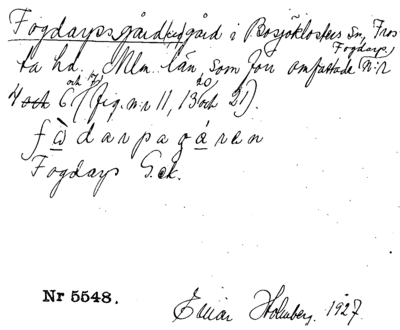 Fogdarpsgård, gård i Bosjöklosters sn, Fros
ta hd. Mlm. län, som förr omfattade Fogdarp n:r
4 och 6 och 17 (fig. n:r 11, 13, 20 och 21).
fàdarpagáren
Fogdarp G.ek.
Nr 5548.
Einar Holmberg. 1927.